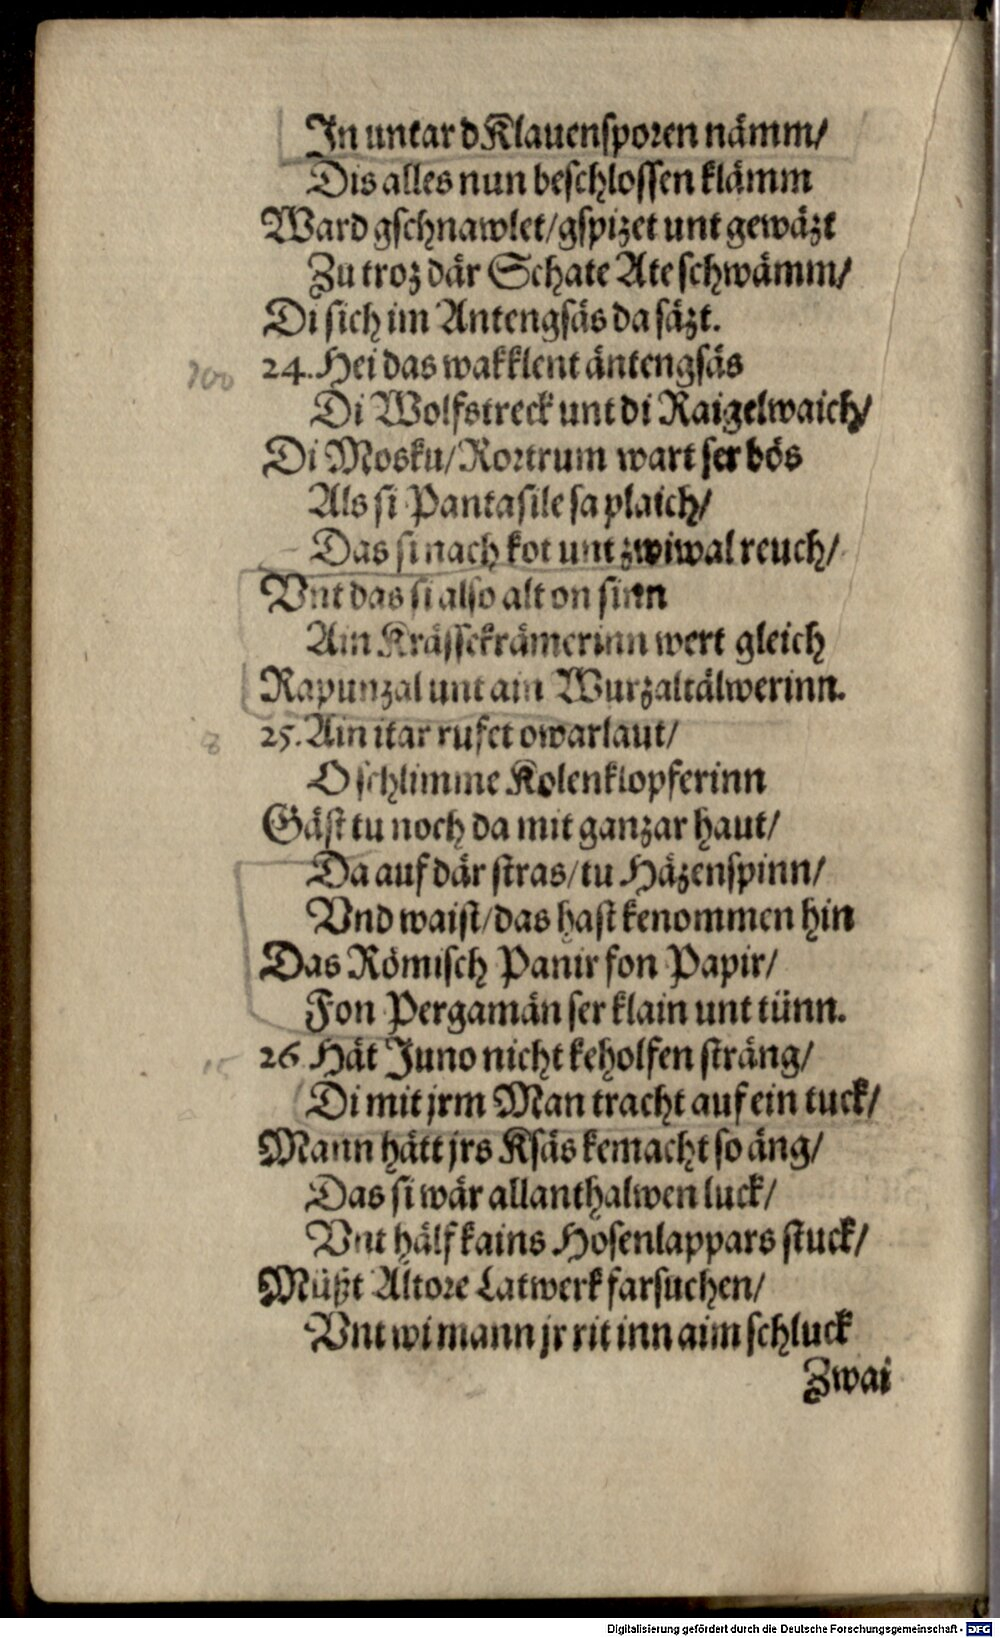 In untar d Klauensporen nämm/
Dis alles nun beschlossen klämm
Ward gschnawlet/gspizet unt gewäzt
Zu troz där Schate Ate schwämm/
Di sich im Antengsäs da säzt.
24. Hei das wakklent äntengsäs
Di Wolfstreck unt di Raigelwaich/
Di Mosku/Rortrum wart ser bös
Als si Pantasile sa plaich/
Das si nach kot unt zwiwal reuch/
Vnt das si also alt on sinn
Ain Krässekrämerinn wert gleich
Rapunzal unt ain Wurzaltälwerinn.
25. Ain itar rufet owarlaut/
O schlimme Kolenklopferinn
Gäst tu noch da mit ganzar haut/
Da auf där stras/tu Häzenspinn/
Vnd waist/das hast kenommen hin
Das Römisch Panir fon Papir/
Fon Pergamän ser klain unt tünn.
26 Hät Juno nicht keholfen sträng/
Di mit jrm Man tracht auf ein tuck/
Mann hätt jrs Ksäs kemacht so äng/
Das si wär allanthalwen luck/
Vnt hälf kains Hosenlappars stuck/
Müßt Altore Latwerk farsuchen/
Vnt wi mann jr rit inn aim schluck
Zwai
100
8
15
Digitalisierung gefördert durch die Deutsche Forschungsgemeinschaft - DFG